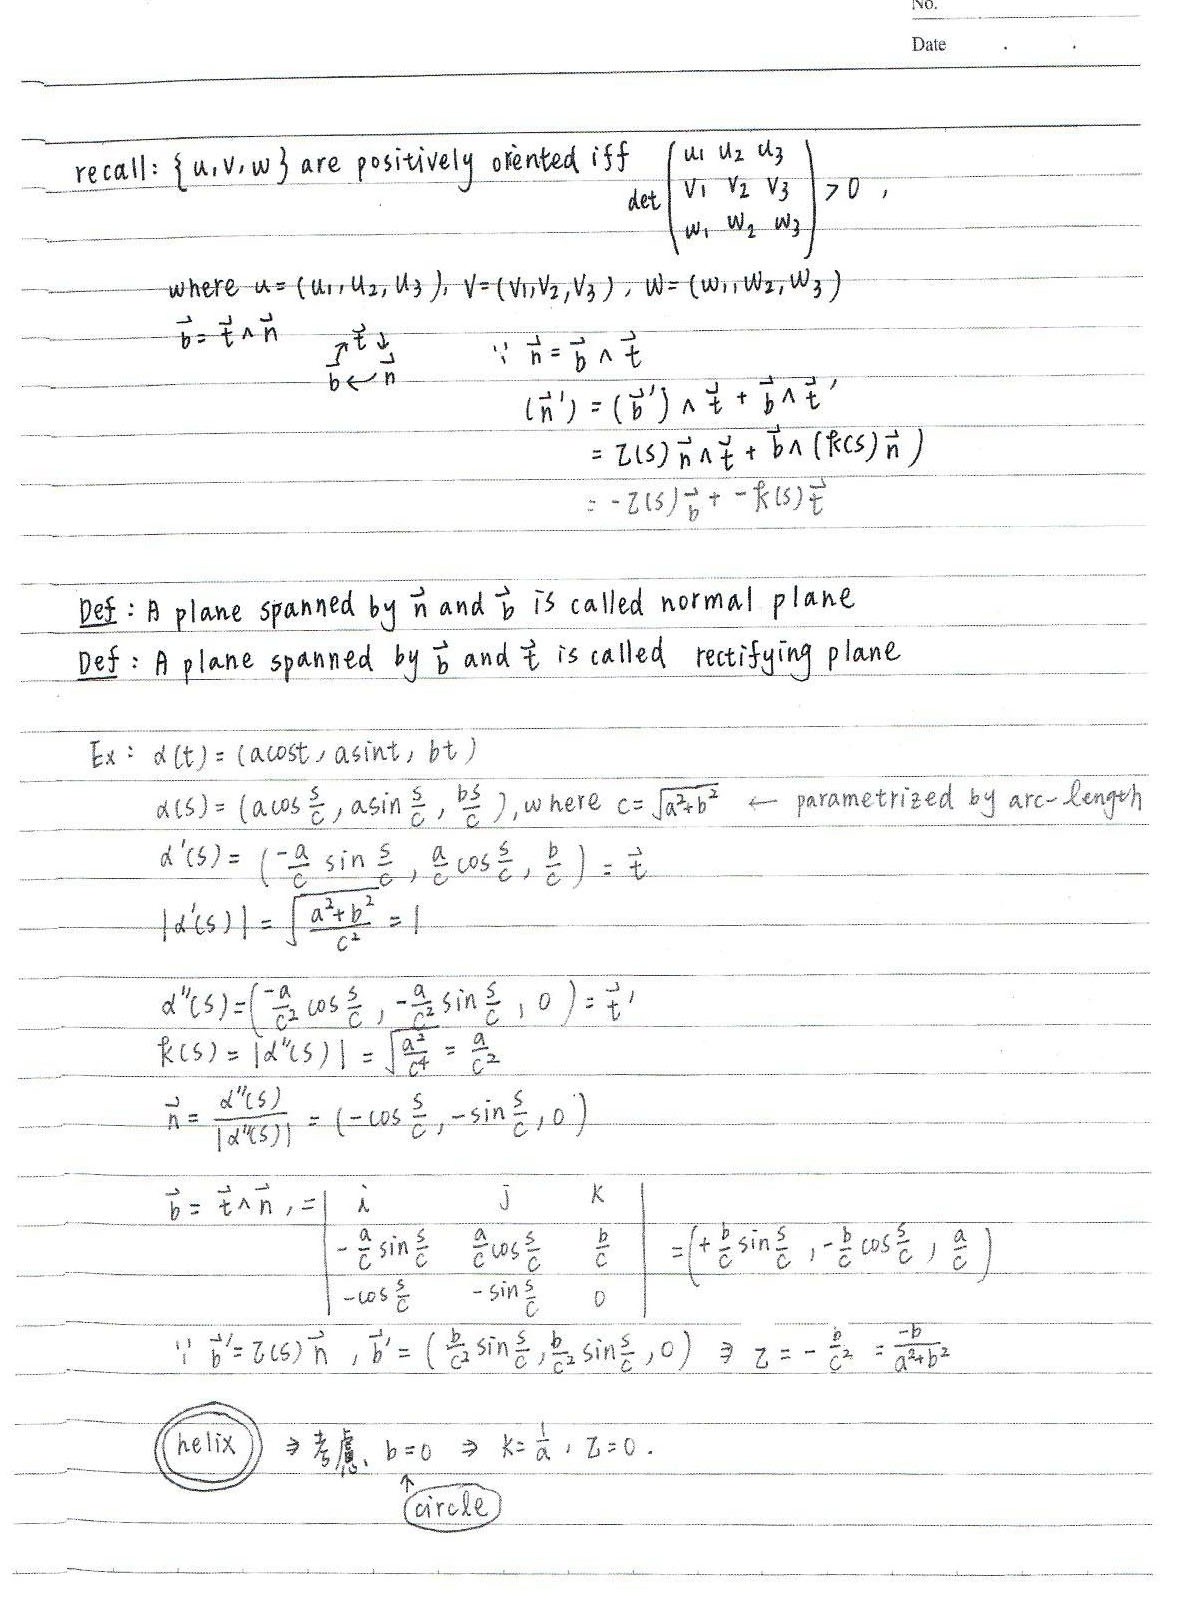 No.
Date . .
recall: {u,v,w} are positively oriented iff det ( u1 u2 u3
v1 v2 v3
w1 w2 w3 ) > 0 ,
where u = (u1, u2, u3), v = (v1, v2, v3), w = (w1, w2, w3)
b⃗ = t⃗ ∧ n⃗
t⃗
b⃗ ← n⃗
∵ n⃗ = b⃗ ∧ t⃗
(n⃗') = (b⃗') ∧ t⃗ + b⃗ ∧ t⃗'
= τ(s) n⃗ ∧ t⃗ + b⃗ ∧ (k(s) n⃗)
= -τ(s) b⃗ + -k(s) t⃗
Def : A plane spanned by n⃗ and b⃗ is called normal plane
Def : A plane spanned by b⃗ and t⃗ is called rectifying plane
Ex : α(t) = (acost, asint, bt)
α(s) = (acos s/c, asin s/c, bs/c), where c = √(a²+b²) ← parametrized by arc-length
α'(s) = (-a/c sin s/c, a/c cos s/c, b/c) = t⃗
|α'(s)| = √((a²+b²)/c²) = 1
α''(s) = (-a/c² cos s/c, -a/c² sin s/c, 0) = t⃗'
k(s) = |α''(s)| = √(a²/c⁴) = a/c²
n⃗ = α''(s)/|α''(s)| = (-cos s/c, -sin s/c, 0)
b⃗ = t⃗ ∧ n⃗, = | i j k
-a/c sin s/c a/c cos s/c b/c
-cos s/c -sin s/c 0 | = (+b/c sin s/c, -b/c cos s/c, a/c)
∵ b⃗' = τ(s) n⃗, b⃗' = (b/c² sin s/c, b/c² sin s/c, 0) ⇒ τ = -b/c² = -b/(a²+b²)
helix ⇒ 考慮、b=0 ⇒ k = 1/a, τ = 0.
↑
circle